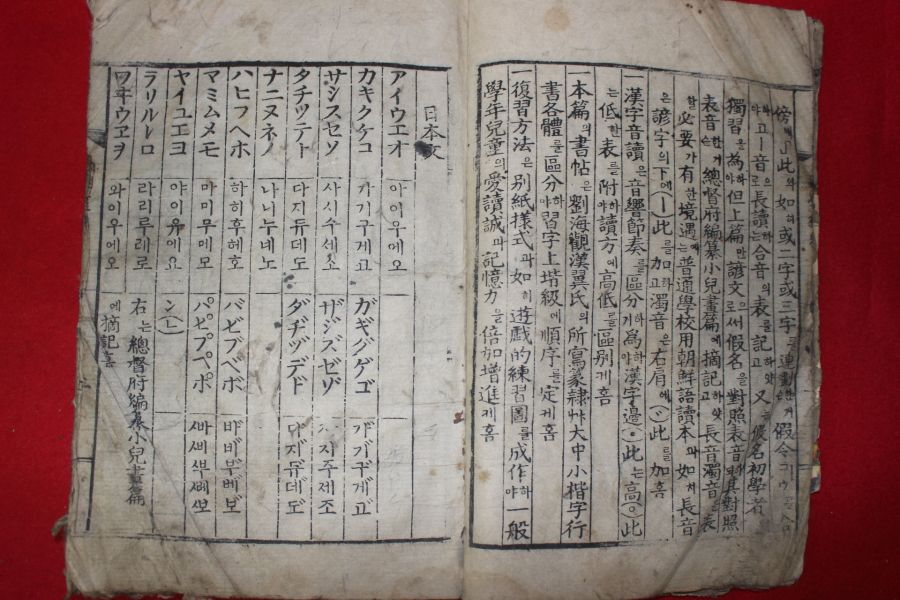 傍에此와如히或二字或三字를連動한거假令
야고ㅣ音로長讀는合音의表를記고又는假名初學者
獨習을為야但上篇만諺文로써假名을對照表音며其對照
表音는거總督府編纂小兒畫篇에摘記얏고長音濁音을表
必要가有한境遇는普通學校用朝鮮語讀本과如치長音
은諺字의下에(ㅣ)此를加고濁音은右肩에(ヾ)此를加홈
一漢字音讀은音響節奏를區分기為야漢字邊(•)此는高(○)此
는低한表를附야讀方에高低를區別게홈
本篇의書帖은劉海觀漢翼氏의所寫篆隷外大中小楷字行
書各體를區分야習字上堦級에順序를定게홈
一復習方法은別紙樣式과如히遊戲的練習圖를成作야一般
學年兒童의愛讀誠과記憶力을倍加增進게홈
日本文
アイウエオ 아이우에오
カキクケコ 가기구게고 ガギグゲゴ
サシスセソ 사시수세소 ザジズゼゾ 자주제조
タチツテト 다지듀데도 ダヂヅデド
ナニヌネノ 나니누네노
ハヒフヘホ 하히후헤호 バビブベボ
マミムメモ 마미무메모 パピプペポ
ヤイユエヨ 야이유에요 ン(ㄴ)
ラリルレロ 라리루레로 右는總督府編纂小兒畫篇
ワヰウヱヲ 와이우에오 에摘記홈